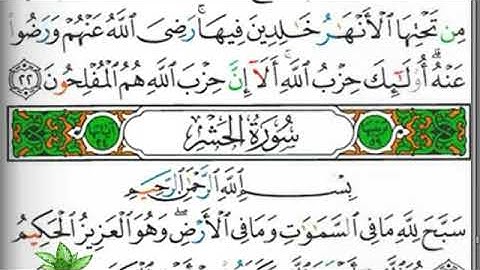 مِن تَحْتِهَا ٱلْأَنْهَٰرُ خَٰلِدِينَ فِيهَا ۚ رَضِىَ ٱللَّهُ عَنْهُمْ وَرَضُوا۟
عَنْهُ ۚ أُو۟لَٰٓئِكَ حِزْبُ ٱللَّهِ ۚ أَلَآ إِنَّ حِزْبَ ٱللَّهِ هُمُ ٱلْمُفْلِحُونَ ٢٢
سُورَةُ الحَشْرِ
بِسْمِ ٱللَّهِ ٱلرَّحْمَٰنِ ٱلرَّحِيمِ
سَبَّحَ لِلَّهِ مَا فِى ٱلسَّمَٰوَٰتِ وَمَا فِى ٱلْأَرْضِ ۖ وَهُوَ ٱلْعَزِيزُ ٱلْحَكِيمُ